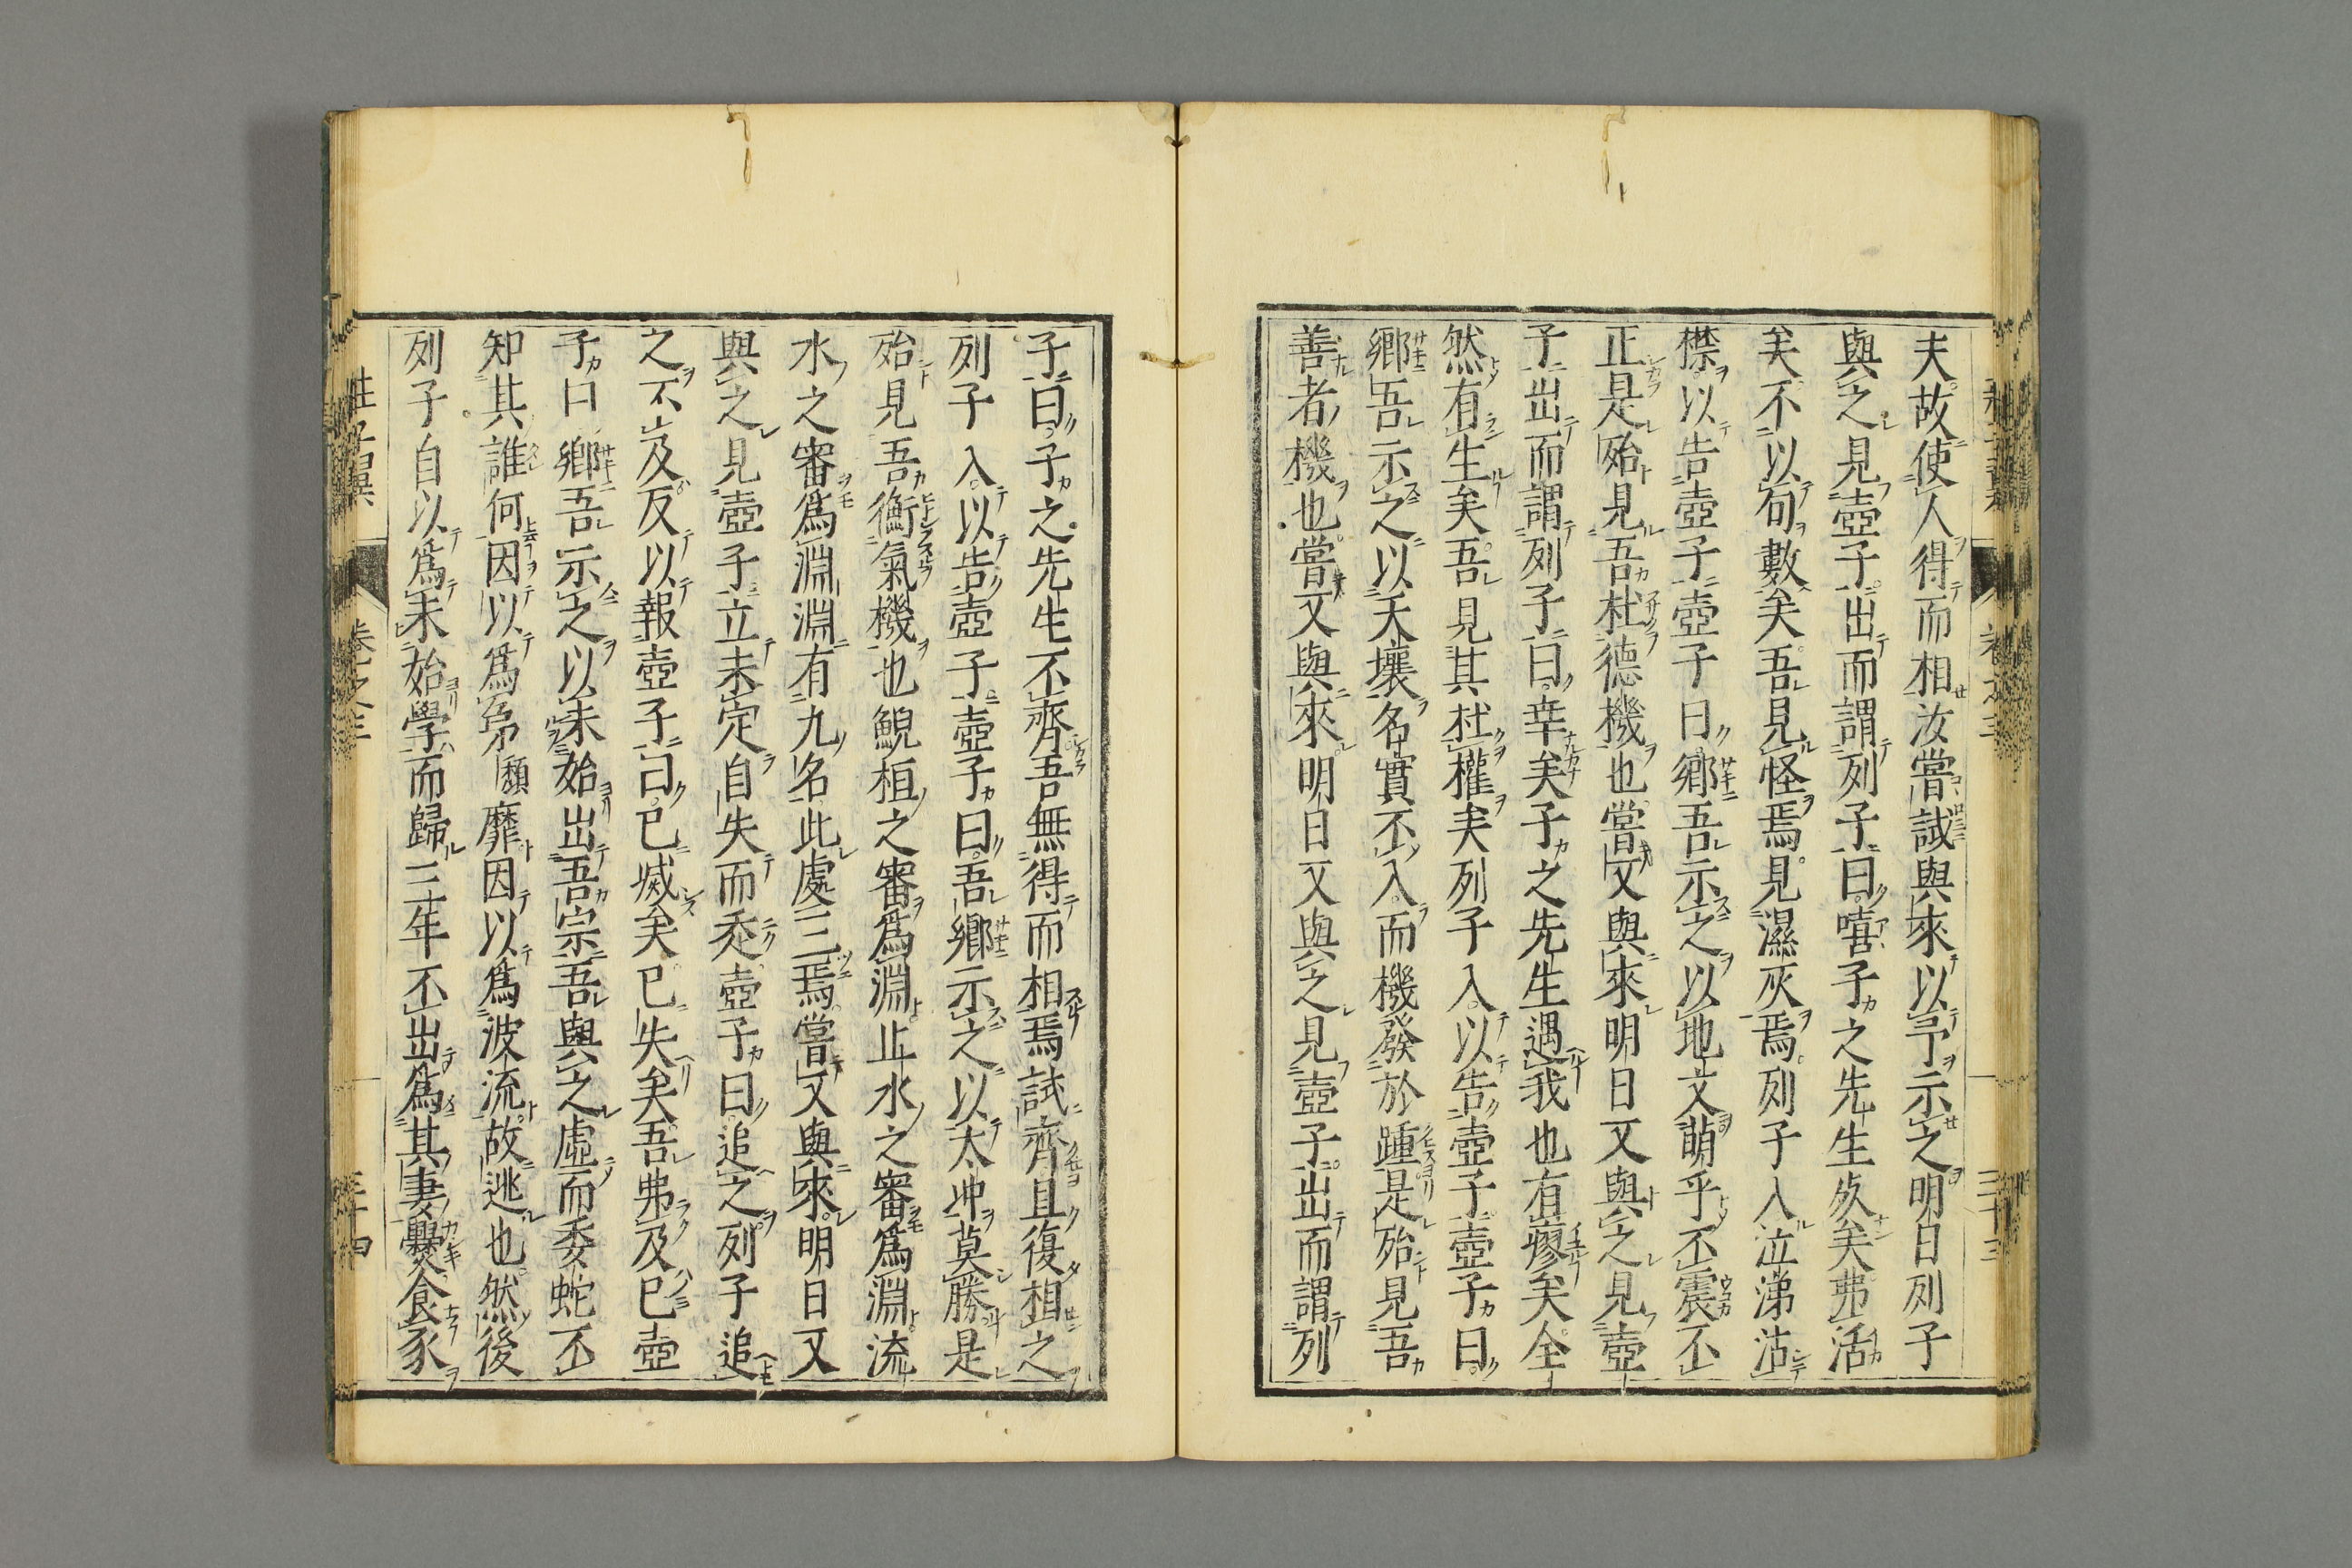 夫故使人得而相汝嘗試與來以予示之明日列子
與之見壺子出而謂列子曰嘻子之先生死矣弗活
矣不以旬數矣吾見怪焉見濕灰焉列子入泣涕沾
襟以告壺子壺子曰鄉吾示之以地文萌乎不震不
正是殆見吾杜德機也嘗又與來明日又與之見壺
子出而謂列子曰幸矣子之先生遇我也有瘳矣全
然有生矣吾見其杜權矣列子入以告壺子壺子曰
鄉吾示之以天壤名實不入而機發於踵是殆見吾
善者機也嘗又與來明日又與之見壺子出而謂列
子曰子之先生不齊吾無得而相焉試齊且復相之
列子入以告壺子壺子曰吾鄉示之以太沖莫勝是
殆見吾衡氣機也鯢桓之審爲淵止水之審爲淵流
水之審爲淵淵有九名此處三焉嘗又與來明日又
與之見壺子立未定自失而走壺子曰追之列子追
之不及反以報壺子曰已滅矣已失矣吾弗及已壺
子曰鄉吾示之以未始出吾宗吾與之虛而委蛇不
知其誰何因以爲弟靡因以爲波流故逃也然後
列子自以爲未始學而歸三年不出爲其妻爨食豕
莊子翼 卷之三 三十四